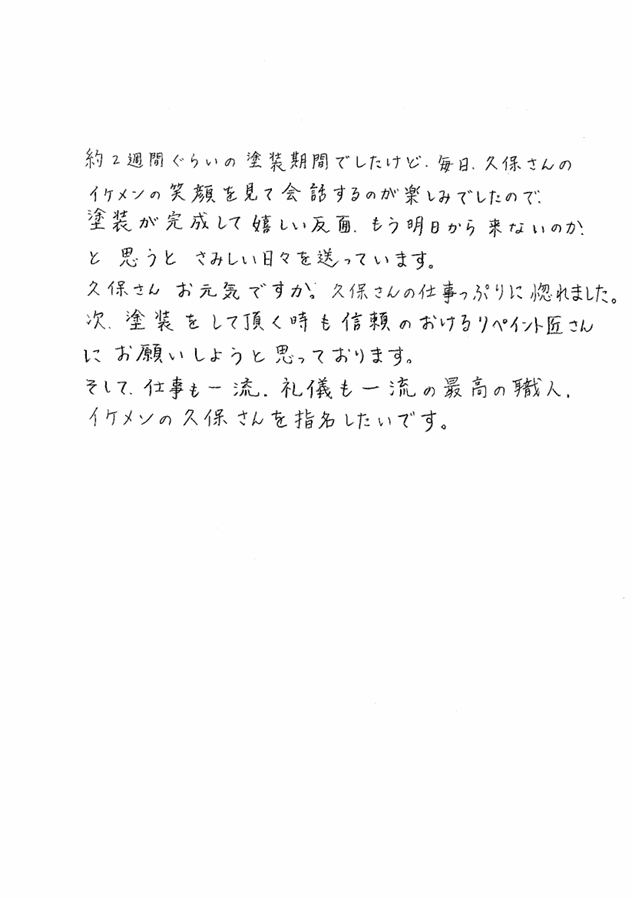 約2週間ぐらいの塗装期間でしたけど、毎日、久保さんの
イケメンの笑顔を見て会話するのが楽しみでしたので、
塗装が完成して嬉しい反面、もう明日から来ないのか、
と思うとさみしい日々を送っています。
久保さんお元気ですか。久保さんの仕事っぷりに惚れました。
次、塗装をして頂く時も信頼のおけるリペイント匠さん
にお願いしようと思っております。
そして、仕事も一流、礼儀も一流の最高の職人、
イケメンの久保さんを指名したいです。